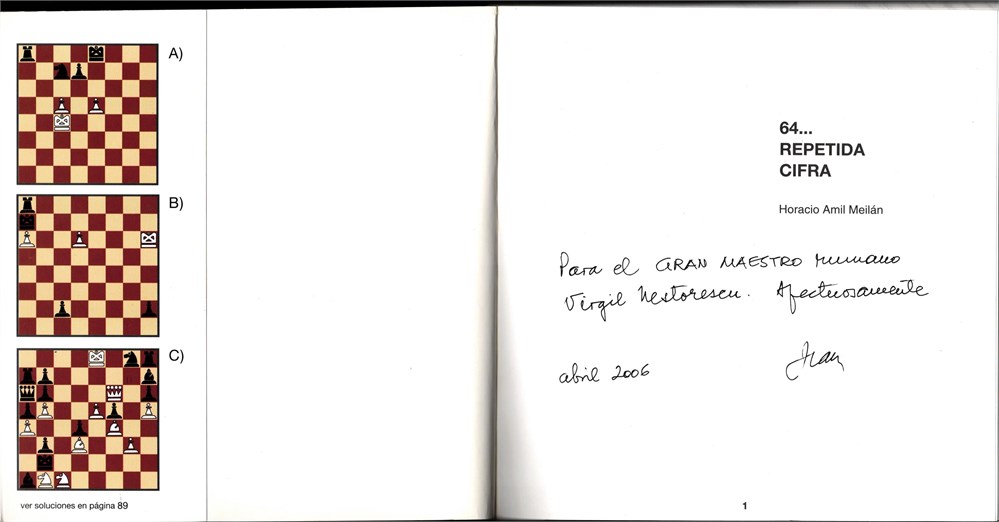 A)
B)
C)
ver soluciones en página 89
64...
REPETIDA
CIFRA
Horacio Amil Meilán
Para el GRAN MAESTRO rumano
Virgil Nestorescu. Afectuosamente
abril 2006
1